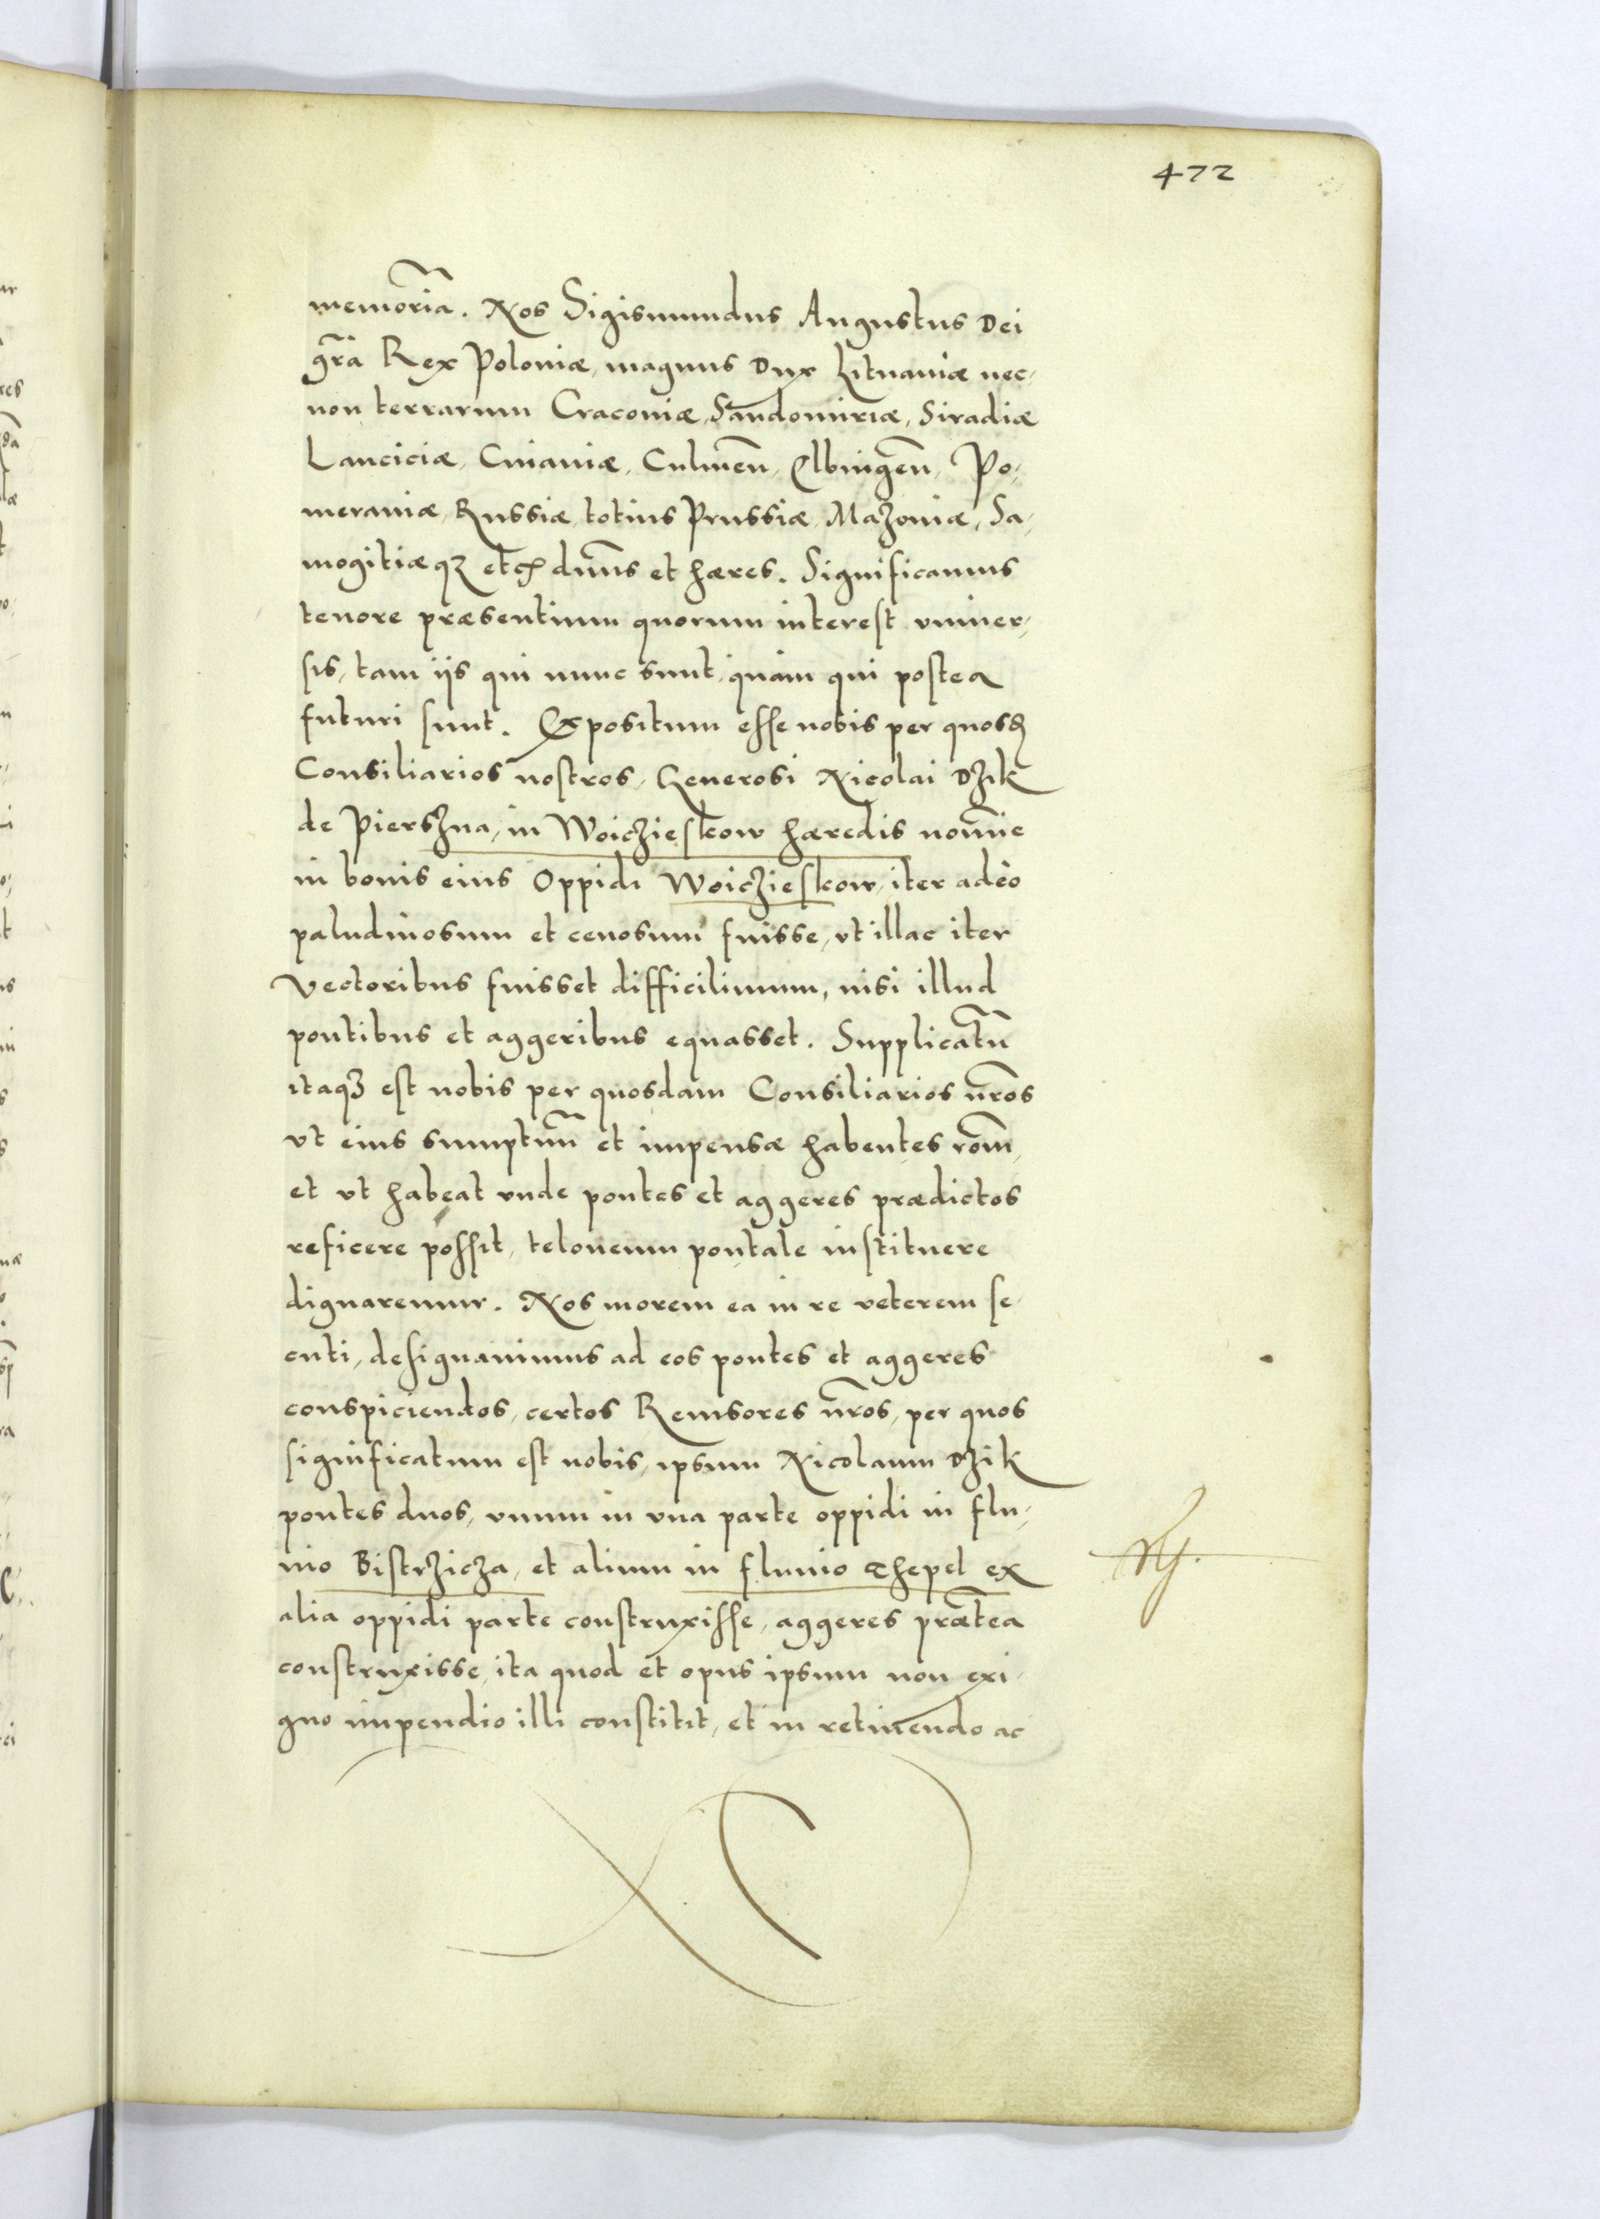 472
memoria. Nos Sigismundus Augustus Dei
gra Rex Poloniæ, magnus Dux Lituaniæ nec-
non terrarum Cracoviæ, Sandomiriæ, Siradiæ
Lanciciæ, Cuiaviæ, Culmen, Elbingen, Po-
meraniæ, Russiæ, totius Prussiæ, Mazoviæ, Sa-
mogitiæqz etc dnns et hæres. Significamus
tenore præsentium quorum interest univer-
sis, tam iis qui nunc sunt, quam qui postea
futuri sunt. Expositum esse nobis per quosd
Consiliarios nostros, Generosi Nicolai Dzik
de Pierszna, in Woiczieskow hæredis nomine
in bonis eius Oppidi Woiczieskow, iter adeo
paludinosum et cenosum fuisse, ut illac iter
Vectoribus fuisset difficilimum, nisi illud
pontibus et aggeribus equasset. Supplicatu
itaqz est nobis per quosdam Consiliarios nros
ut eius sumptuu et impensæ habentes rom,
et ut habeat unde pontes et aggeres prædictos
reficere possit, teloneum pontale instituere
dignaremur. Nos morem ea in re veterem se-
cuti, designavimus ad eos pontes et aggeres
conspiciendos, certos Revisores nros, per quos
significatum est nobis, ipsum Nicolaum Dzik
pontes duos, unum in una parte oppidi in flu-
vio Bistrzicza, et alium in fluvio Thepel ex
alia oppidi parte construxisse, aggeres prætea
construxisse, ita quod et opus ipsum non exi-
guo impendio illi constitit, et in retinendo ac